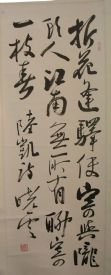 折花逢驿使寄与陇
头人江南无所有聊寄
一枝春 陆凯诗 晓云